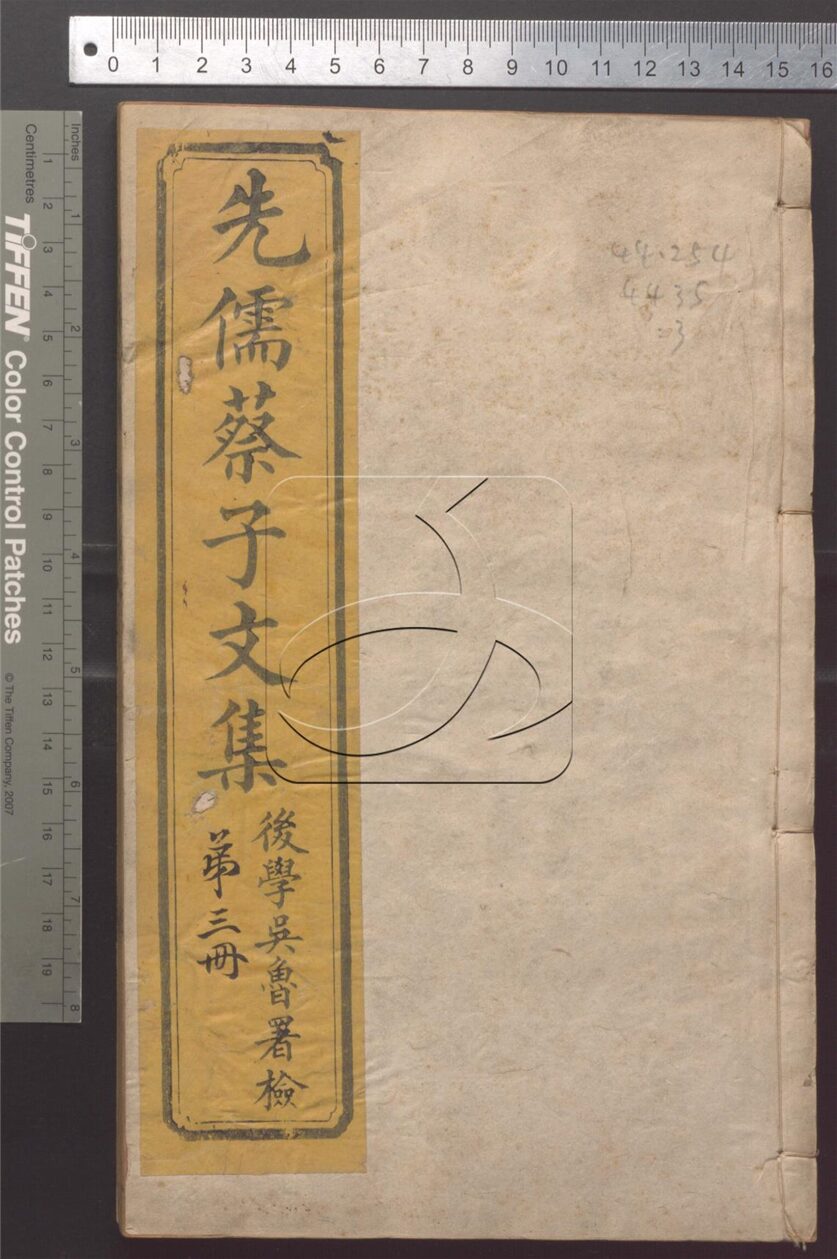 0 1 2 3 4 5 6 7 8 9 10 11 12 13 14 15 16
先儒蔡子文集
後學吳魯署檢
第三冊
44.254
4435
:3
Inches
1 2 3 4 5 6 7 8
Centimetres
1 2 3 4 5 6 7 8 9 10 11 12 13 14 15 16 17 18 19
TIFFEN® Color Control Patches
© The Tiffen Company, 2007